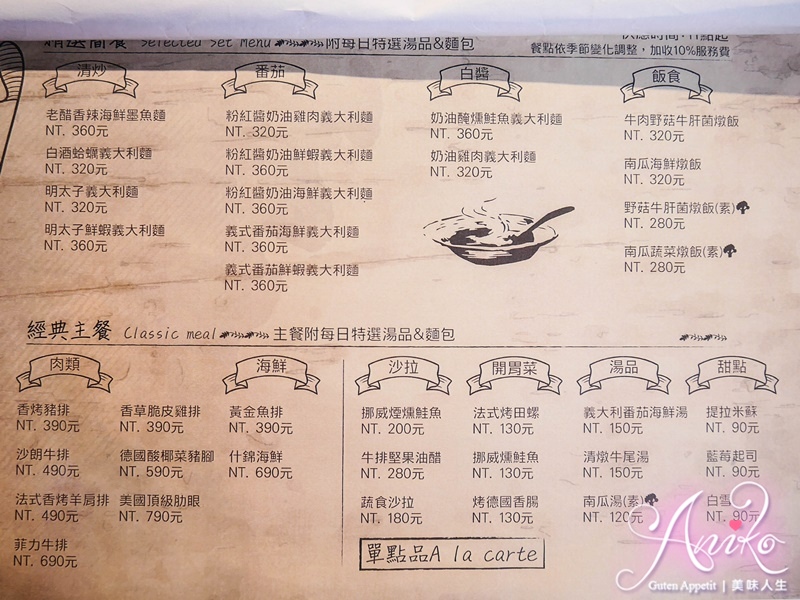 精選簡餐 Selected Set Menu 附每日特選湯品&麵包
餐點依季節變化調整，加收10%服務費
清炒
老醋香辣海鮮墨魚麵
NT. 360元
白酒蛤蠣義大利麵
NT. 320元
明太子義大利麵
NT. 320元
明太子鮮蝦義大利麵
NT. 360元
番茄
粉紅醬奶油雞肉義大利麵
NT. 320元
粉紅醬奶油鮮蝦義大利麵
NT. 360元
粉紅醬奶油海鮮義大利麵
NT. 360元
義式番茄海鮮義大利麵
NT. 360元
義式番茄鮮蝦義大利麵
NT. 360元
白醬
奶油醃燻鮭魚義大利麵
NT. 360元
奶油雞肉義大利麵
NT. 320元
飯食
牛肉野菇牛肝菌燉飯
NT. 320元
南瓜海鮮燉飯
NT. 320元
野菇牛肝菌燉飯(素)
NT. 280元
南瓜蔬菜燉飯(素)
NT. 280元
經典主餐 Classic meal 主餐附每日特選湯品&麵包
肉類
香烤豬排
NT. 390元
沙朗牛排
NT. 490元
法式香烤羊肩排
NT. 490元
菲力牛排
NT. 690元
香草脆皮雞排
NT. 390元
德國酸椰菜豬腳
NT. 590元
美國頂級肋眼
NT. 790元
海鮮
黃金魚排
NT. 390元
什錦海鮮
NT. 690元
沙拉
挪威煙燻鮭魚
NT. 200元
牛排堅果油醋
NT. 280元
蔬食沙拉
NT. 180元
開胃菜
法式烤田螺
NT. 130元
挪威燻鮭魚
NT. 130元
烤德國香腸
NT. 130元
湯品
義大利番茄海鮮湯
NT. 150元
清燉牛尾湯
NT. 150元
南瓜湯(素)
NT. 120元
甜點
提拉米蘇
NT. 90元
藍莓起司
NT. 90元
白雪
NT. 90元
單點品A la carte
Aniko
Guten Appetit | 美味人生